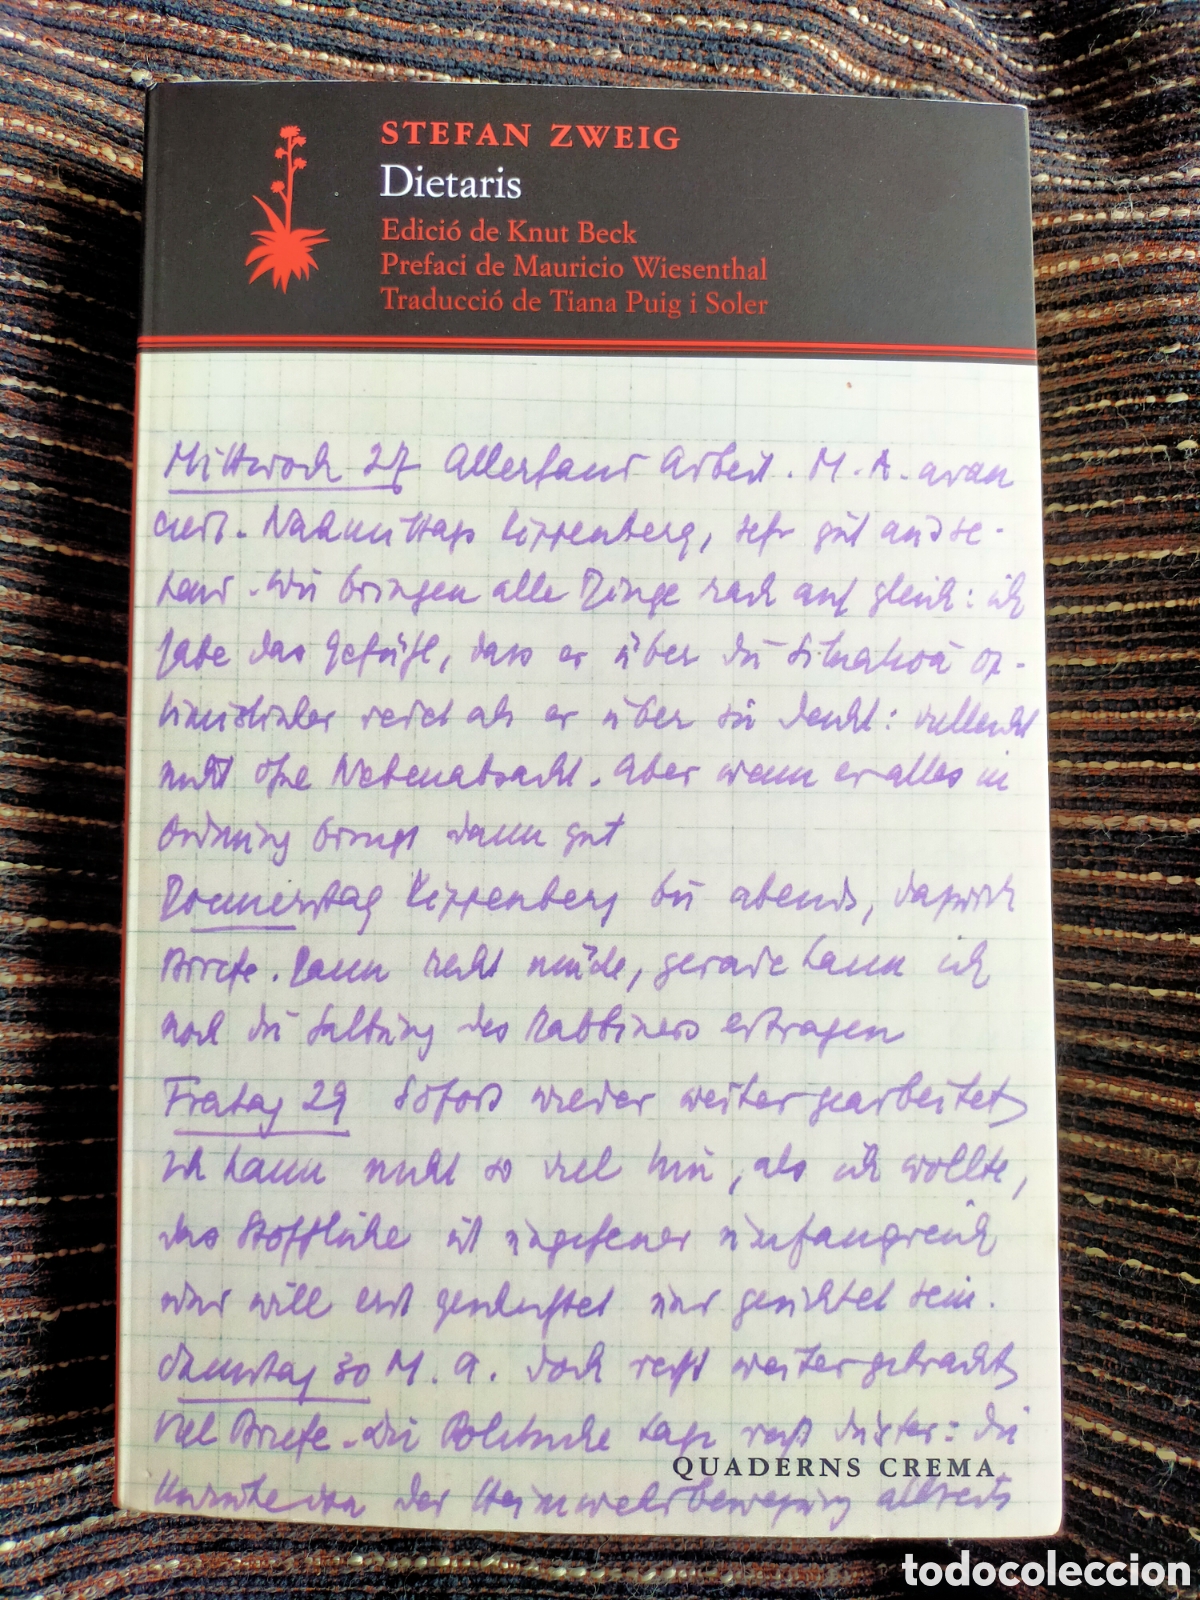 STEFAN ZWEIG
Dietaris
Edició de Knut Beck
Prefaci de Mauricio Wiesenthal
Traducció de Tiana Puig i Soler
Mittwoch 27 Allerhand Arbeit. M. A. avan
ciert. Nachmittags Kippenberg, sehr gut ausse-
hend. Wir bringen alle Dinge rasch auf gleich: ich
habe das Gefühl, dass er über die Situation op-
timistischer redet als er über sie denkt: vielleicht
nicht ohne Nebenabsicht. Aber wenn er alles in
Ordnung bringt dann gut
Donnerstag Kippenberg bis abends, dazwisch
Briefe. Dann recht müde, gerade kann ich
noch die Salbung des Rabbiners ertragen
Freitag 29 Sofort wieder weiter gearbeitet
Ich kann nicht so viel tun, als ich wollte,
das Stoffliche ist ungeheuer umfangreich
und will erst gesichtet sein.
Samstag 30 M. A. doch recht weiter gebracht
Viel Briefe. Die Politische Lage recht düster: die
der Heimwehrbewegung allseits
QUADERNS CREMA
todocoleccion